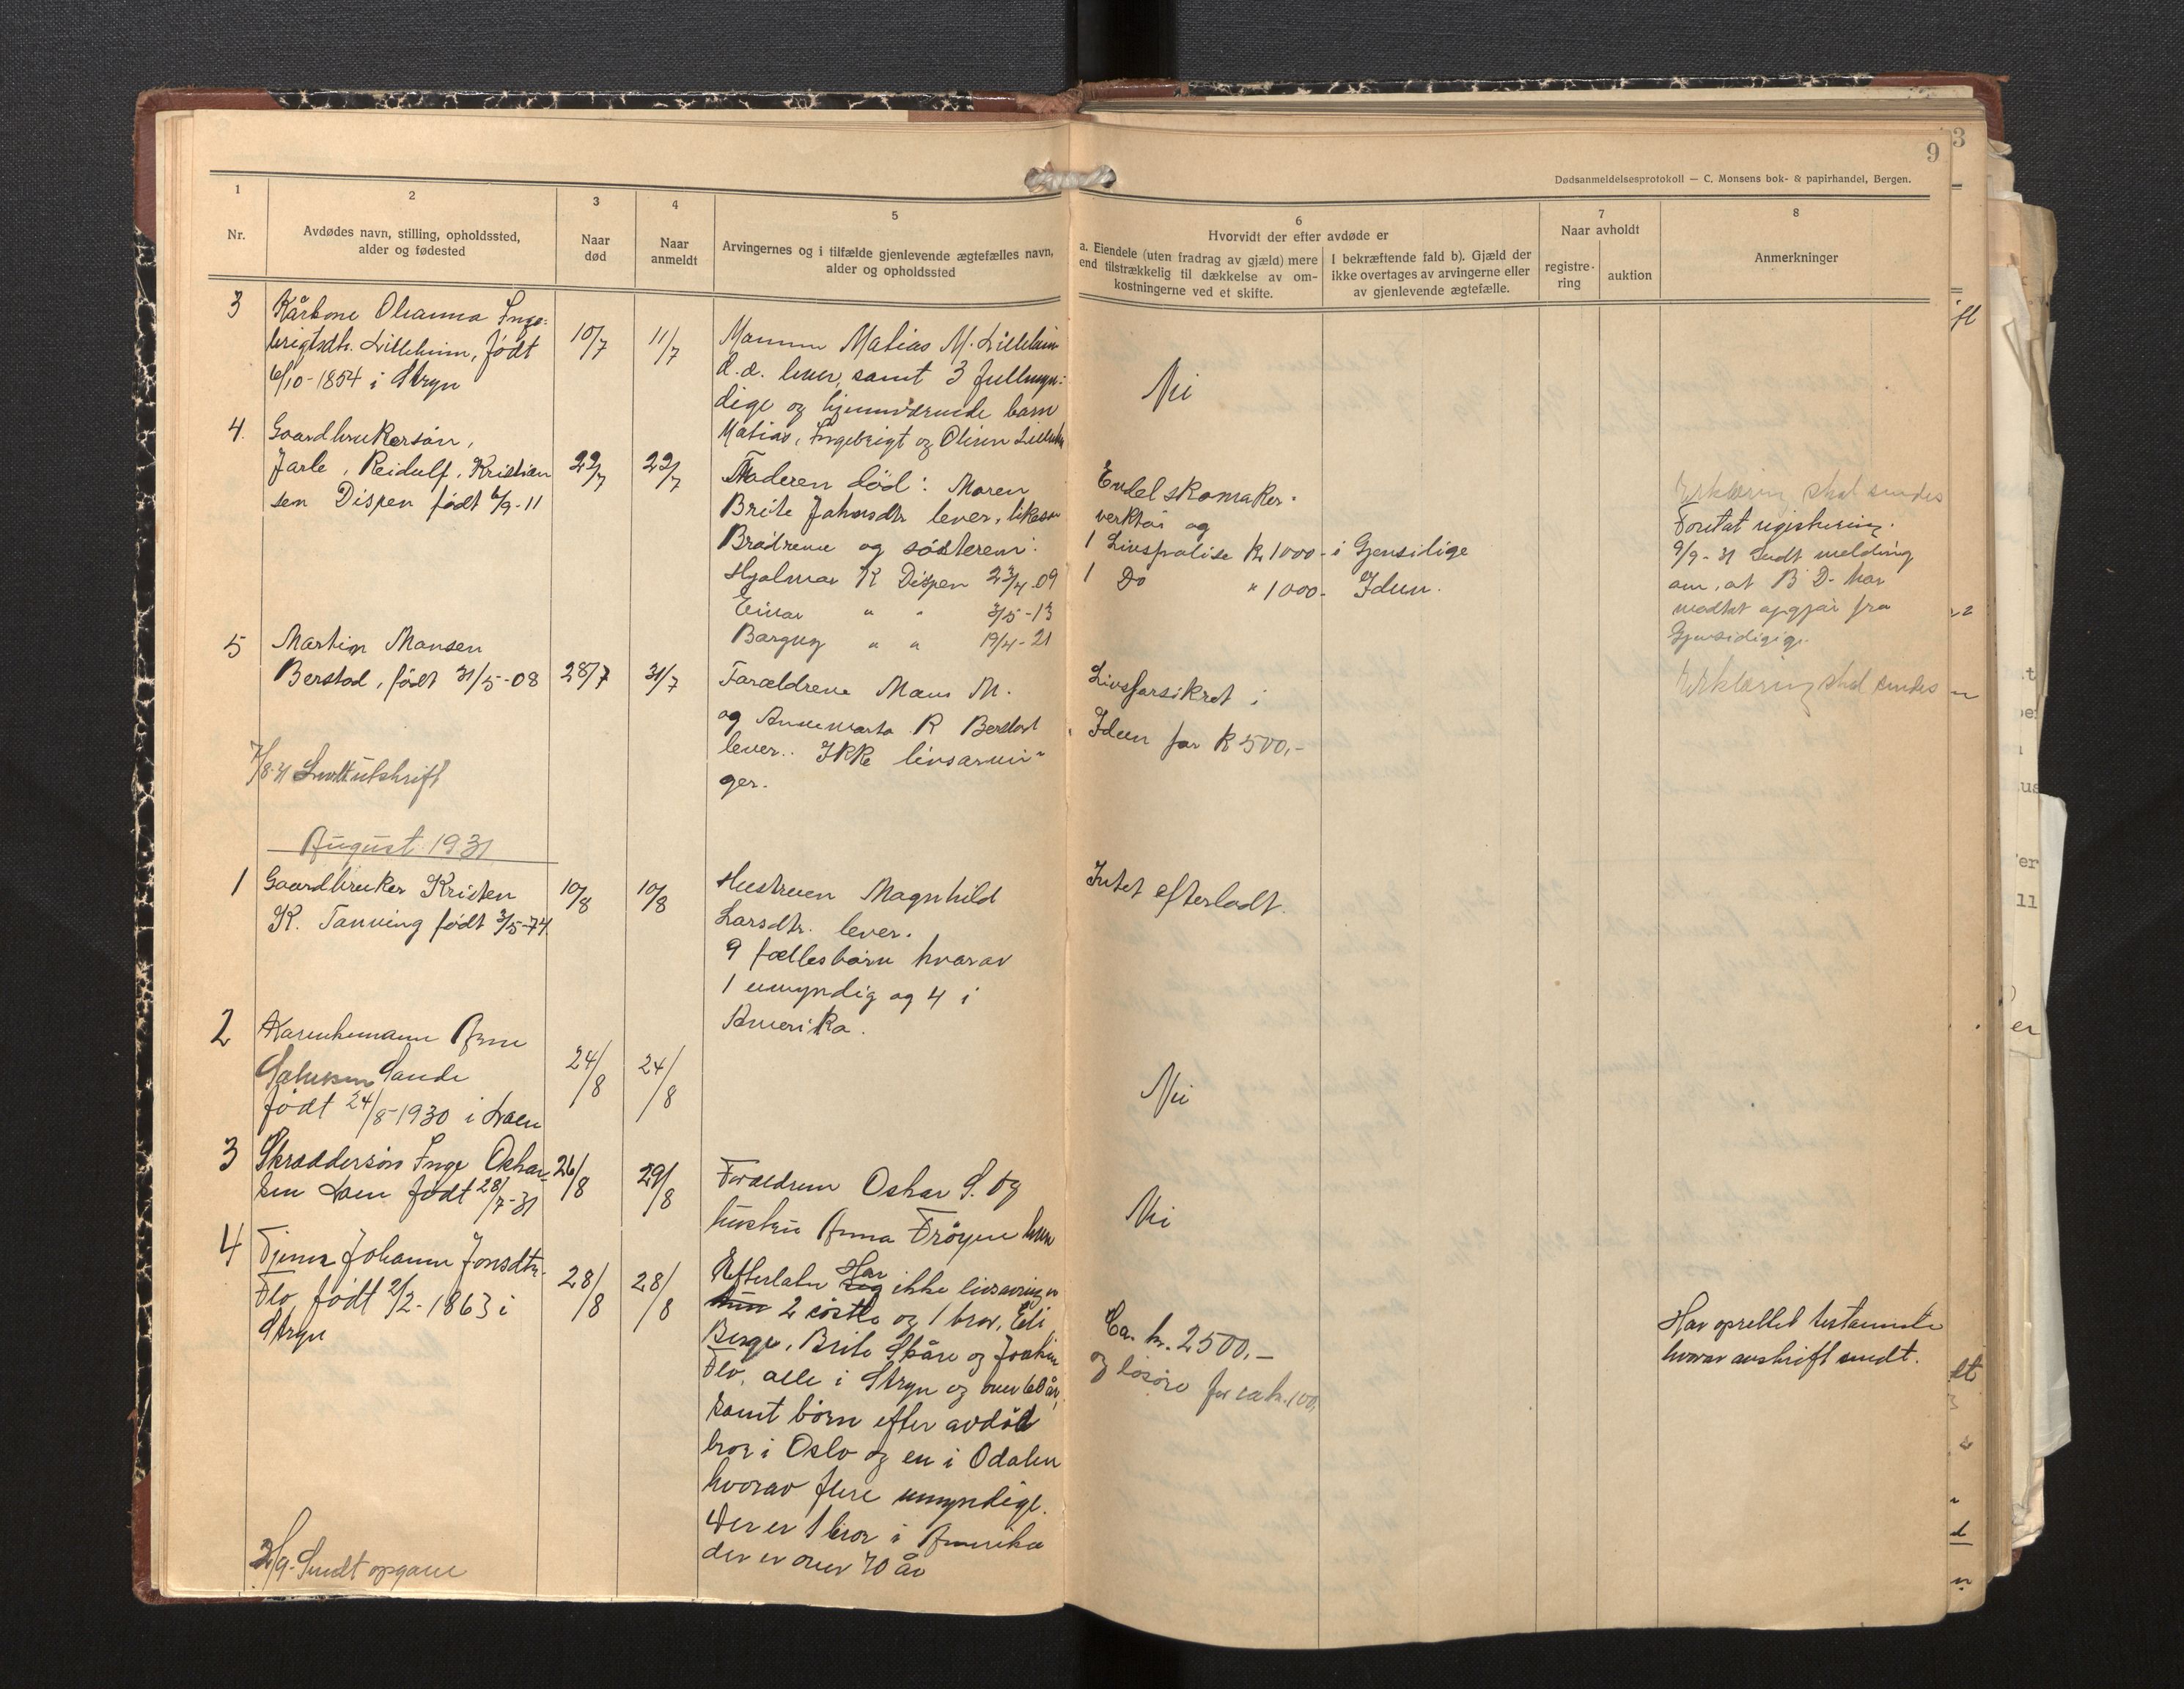 9
Dødsanmeldelsesprotokoll — C. Monsens bok- & papirhandel, Bergen.
1
Nr.
2
Avdødes navn, stilling, opholdssted,
alder og fødested
3
Naar
død
4
Naar
anmeldt
5
Arvingernes og i tilfælde gjenlevende ægtefælles navn,
alder og opholdssted
6
Hvorvidt der efter avdøde er
a. Eiendele (uten fradrag av gjæld) mere
end tilstrækkelig til dækkelse av om-
kostningerne ved et skifte.
I bekræftende fald b). Gjæld der
ikke overtages av arvingerne eller
av gjenlevende ægtefælle.
7
Naar avholdt
registre-
ring
auktion
8
Anmerkninger
3
Kårkone Oleanna Inge-
brigtsdtr. Lilleheim, født
6/10-1854 i Stryn
10/7
11/7
Mannen Matias M. Lilleheim
d.d. lever, samt 3 fullmyn-
dige og hjemmværende barn
Matias, Ingebrigt og Olisen
Nei
4.
Gaardbrukersøn,
Jarle, Reidulf, Kristian
sen Dispen født 6/9-11
22/7
22/7
Faderen død: Moren
Brite Johnsdtr lever, likesaa
Brødrene og søsteren:
Hjalmar K Dispen 23/4-09
Einar " " 3/5-13
Borgny " " 19/4-21
Endel skomaker-
verktøi og
1 Livspolise Kr 1000- i Gjensidige
1 Do " 1000- Idun.
Erklæring skal sendes
Foretat registrering.
9/9-31 Sendt melding
om, at B D- har
modtat opgjør fra
Gjensidigige.
5
Martin Monsen
Berstad, født 31/5-08
28/7
31/7
Forældrene Mons M.
og Annemarta R Berstad
lever.. IKKe livsarvin-
ger.
Livsforsikret i
Idun for K 500,-
Erklæring skal sendes
7/8 31 Sendt utskrift
August 1931
1
Gaardbruker Kristen
K. Tonning født 3/5-74
10/8
10/8
Hustruen Magnhild
Larsdtr. lever.
9 fællesbørn hvorav
1 umyndig og 4 i
Amerika.
Intet efterladt.
2
Arne
Sande
født 24/8-1930 i Loen
24/8
24/8
Nei
3
Skræddersøn Inge Oskar-
sen Loen født 28/7-31
26/8
29/8
Forældrene Oskar S. og
hustru Anna Frøyen lever
Nei
4
Tjener Johanne Jonsdtr.
Flo, født 2/2-1863 i
Stryn
28/8
28/8
Efterlater Har ikke livsarvinger
2 søstre og 1 bror, Eli
Berge, Brite Skåre og Joakim
Flo, alle i Stryn og over 60 år,
samt børn efter avdød
bror i Oslo og en i Odalen
hvorav flere umyndige.
Der er 1 bror i Amerika
der er over 70 år
Ca. kr. 2500.-
og løsøre for ca kr. 100,
Har oprettet testamente
hvorav avskrift sendt.
2/9- Sendt opgave